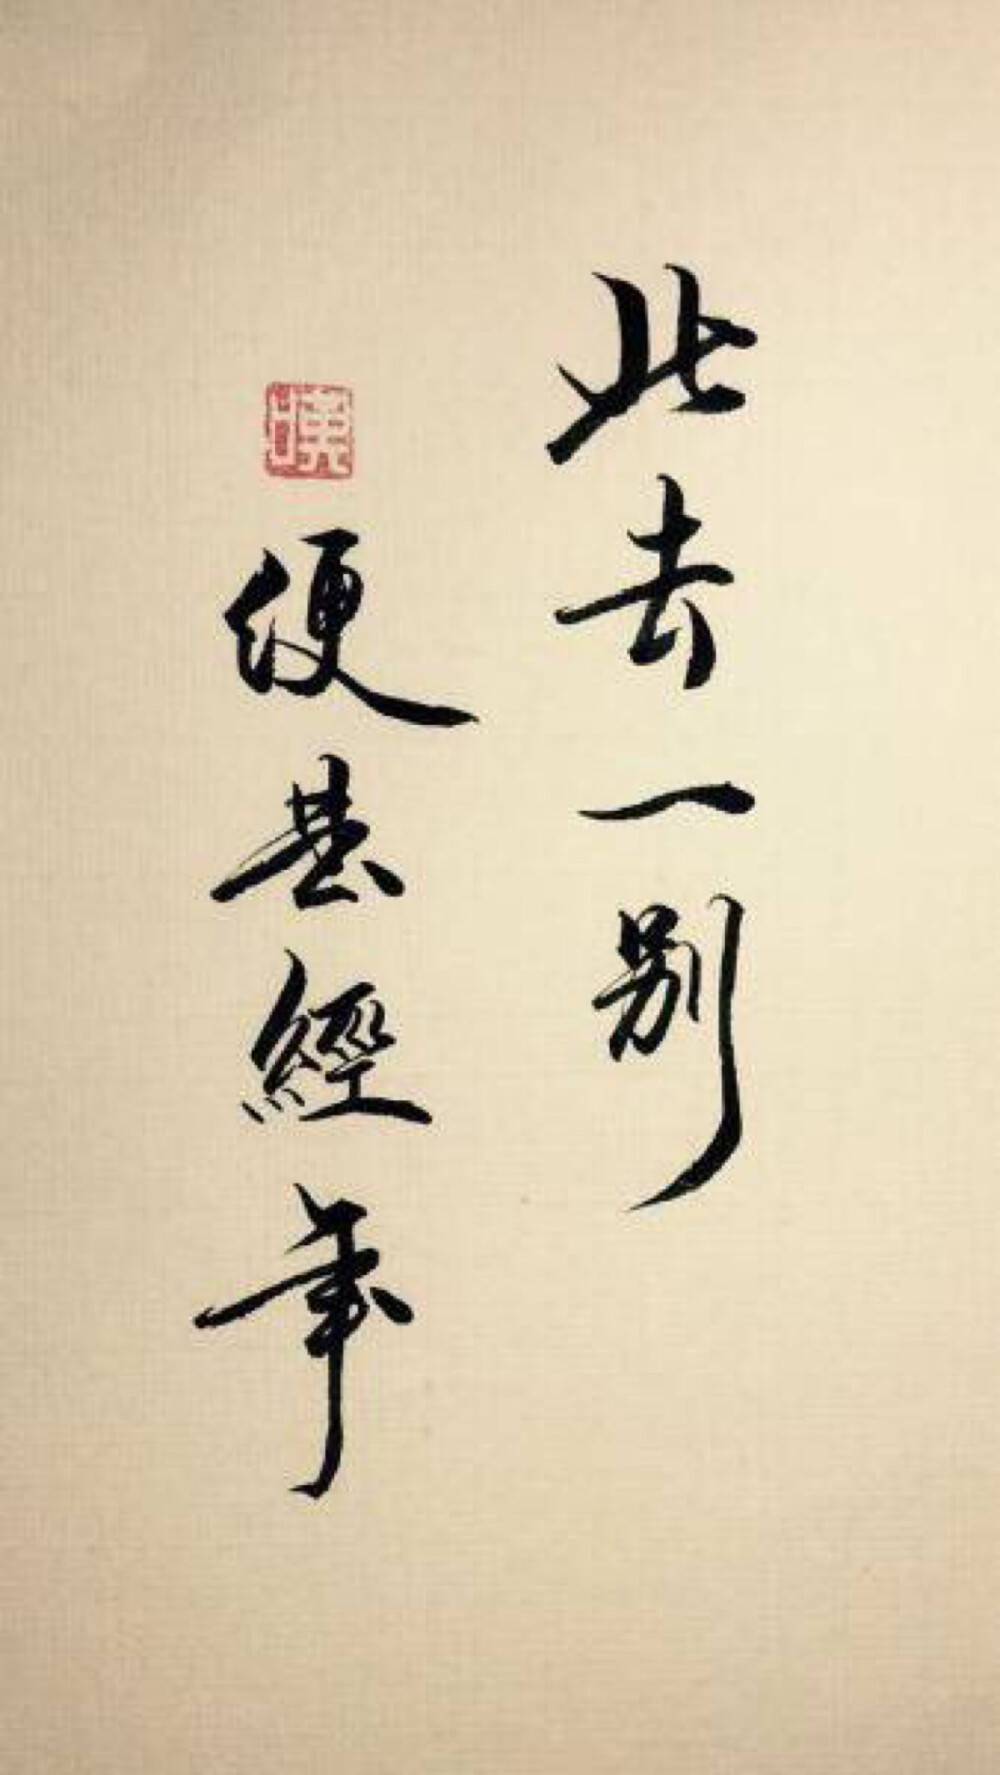 此去一别
便甚經年